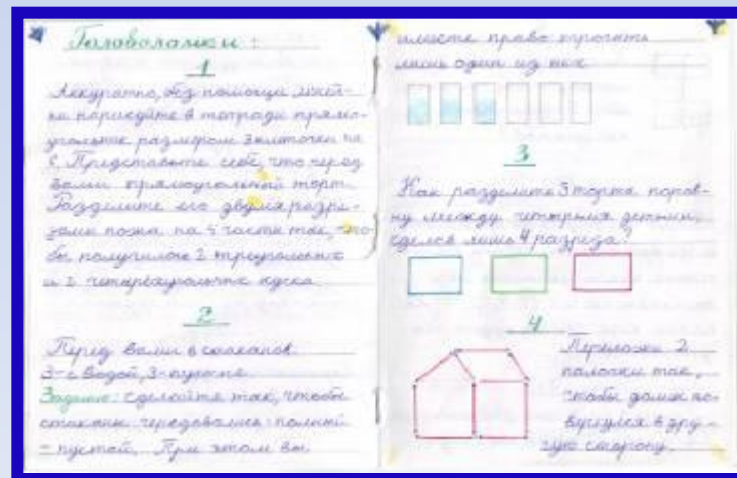 Головоломки:
1
Аккуратно, без помощи линей-
ки нарисуйте в тетради прямо-
угольник размером 3 клеточки на
6. Представьте себе, что перед
вами прямоугольный торт.
Разделите его двумя разре-
зами ножа на 4 части так, что-
бы получилось 2 треугольных
и 2 четырёхугольных куска.
2
Перед вами 6 стаканов.
3-с водой, 3-пустые.
Задание: сделайте так, чтобы
стаканы чередовались: полный
- пустой. При этом вы
имеете право трогать
лишь один из них
3
Как разделить 3 торта поров-
ну между четырьмя детьми,
сделав лишь 4 разреза?
4
Переложи 2
палочки так,
чтобы домик по-
вернулся в дру-
гую сторону.